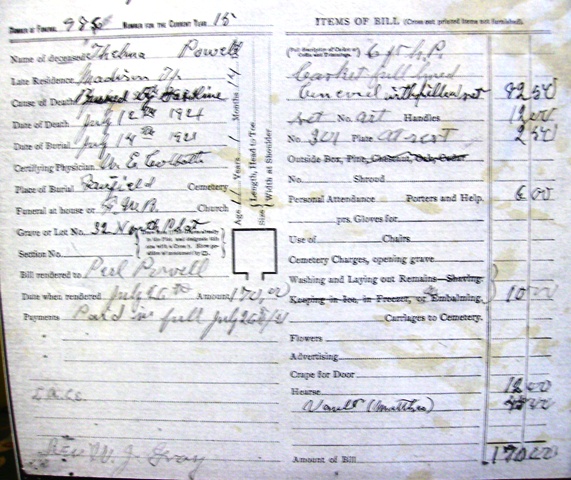 NUMBER OF FUNERAL 986 NUMBER FOR THE CURRENT YEAR 15
Name of deceased Thelma Powell
Late Residence Madison Tp
Cause of Death Burned by Gasoline
Date of Death July 12th 1921
Date of Burial July 14th 1921
Certifying Physician
Place of Burial Fairfield Cemetery
Funeral at house or Church
Grave or Lot No. 32 North Plat
Section No.
Bill rendered to Perl Powell
Date when rendered July 26th Amount 170.00
Payments Paid in full July 26/21
"
"
"
"
Rev W. J. Gray
Age Years Months
Size Length, Head to Toe
Width at Shoulder
ITEMS OF BILL (Cross out printed items not furnished)
Casket full lined
with pillow set 82.50
set No. Art Handles 12.00
No. 301 Plate At rest 2.50
Outside Box, Pine, Chestnut, Oak, Cedar
No. Shroud
Personal Attendance Porters and Help, 6 00
prs. Gloves for
Use of Chairs
Cemetery Charges, opening grave
Washing and Laying out Remains Shaving
Keeping in Ice, in Freezer, or Embalming, 10
Carriages to Cemetery,
Flowers
Advertising
Crape for Door
Hearse 12 00
Vault
Amount of Bill 170.00